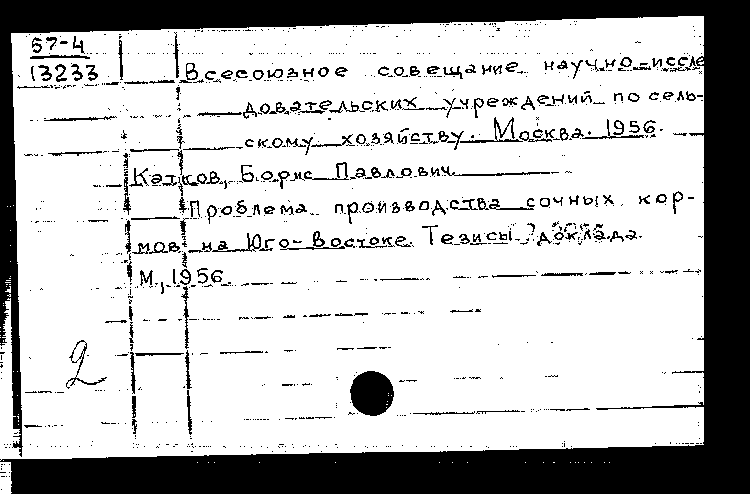 57-4
13233
Всесоюзное совещание научно-иссле
довательских учреждений по сель-
скому хозяйству. Москва. 1956.
Катков, Борис Павлович
Проблема производства сочных кор-
мов на Юго-Востоке. Тезисы доклада.
М., 1956.
2